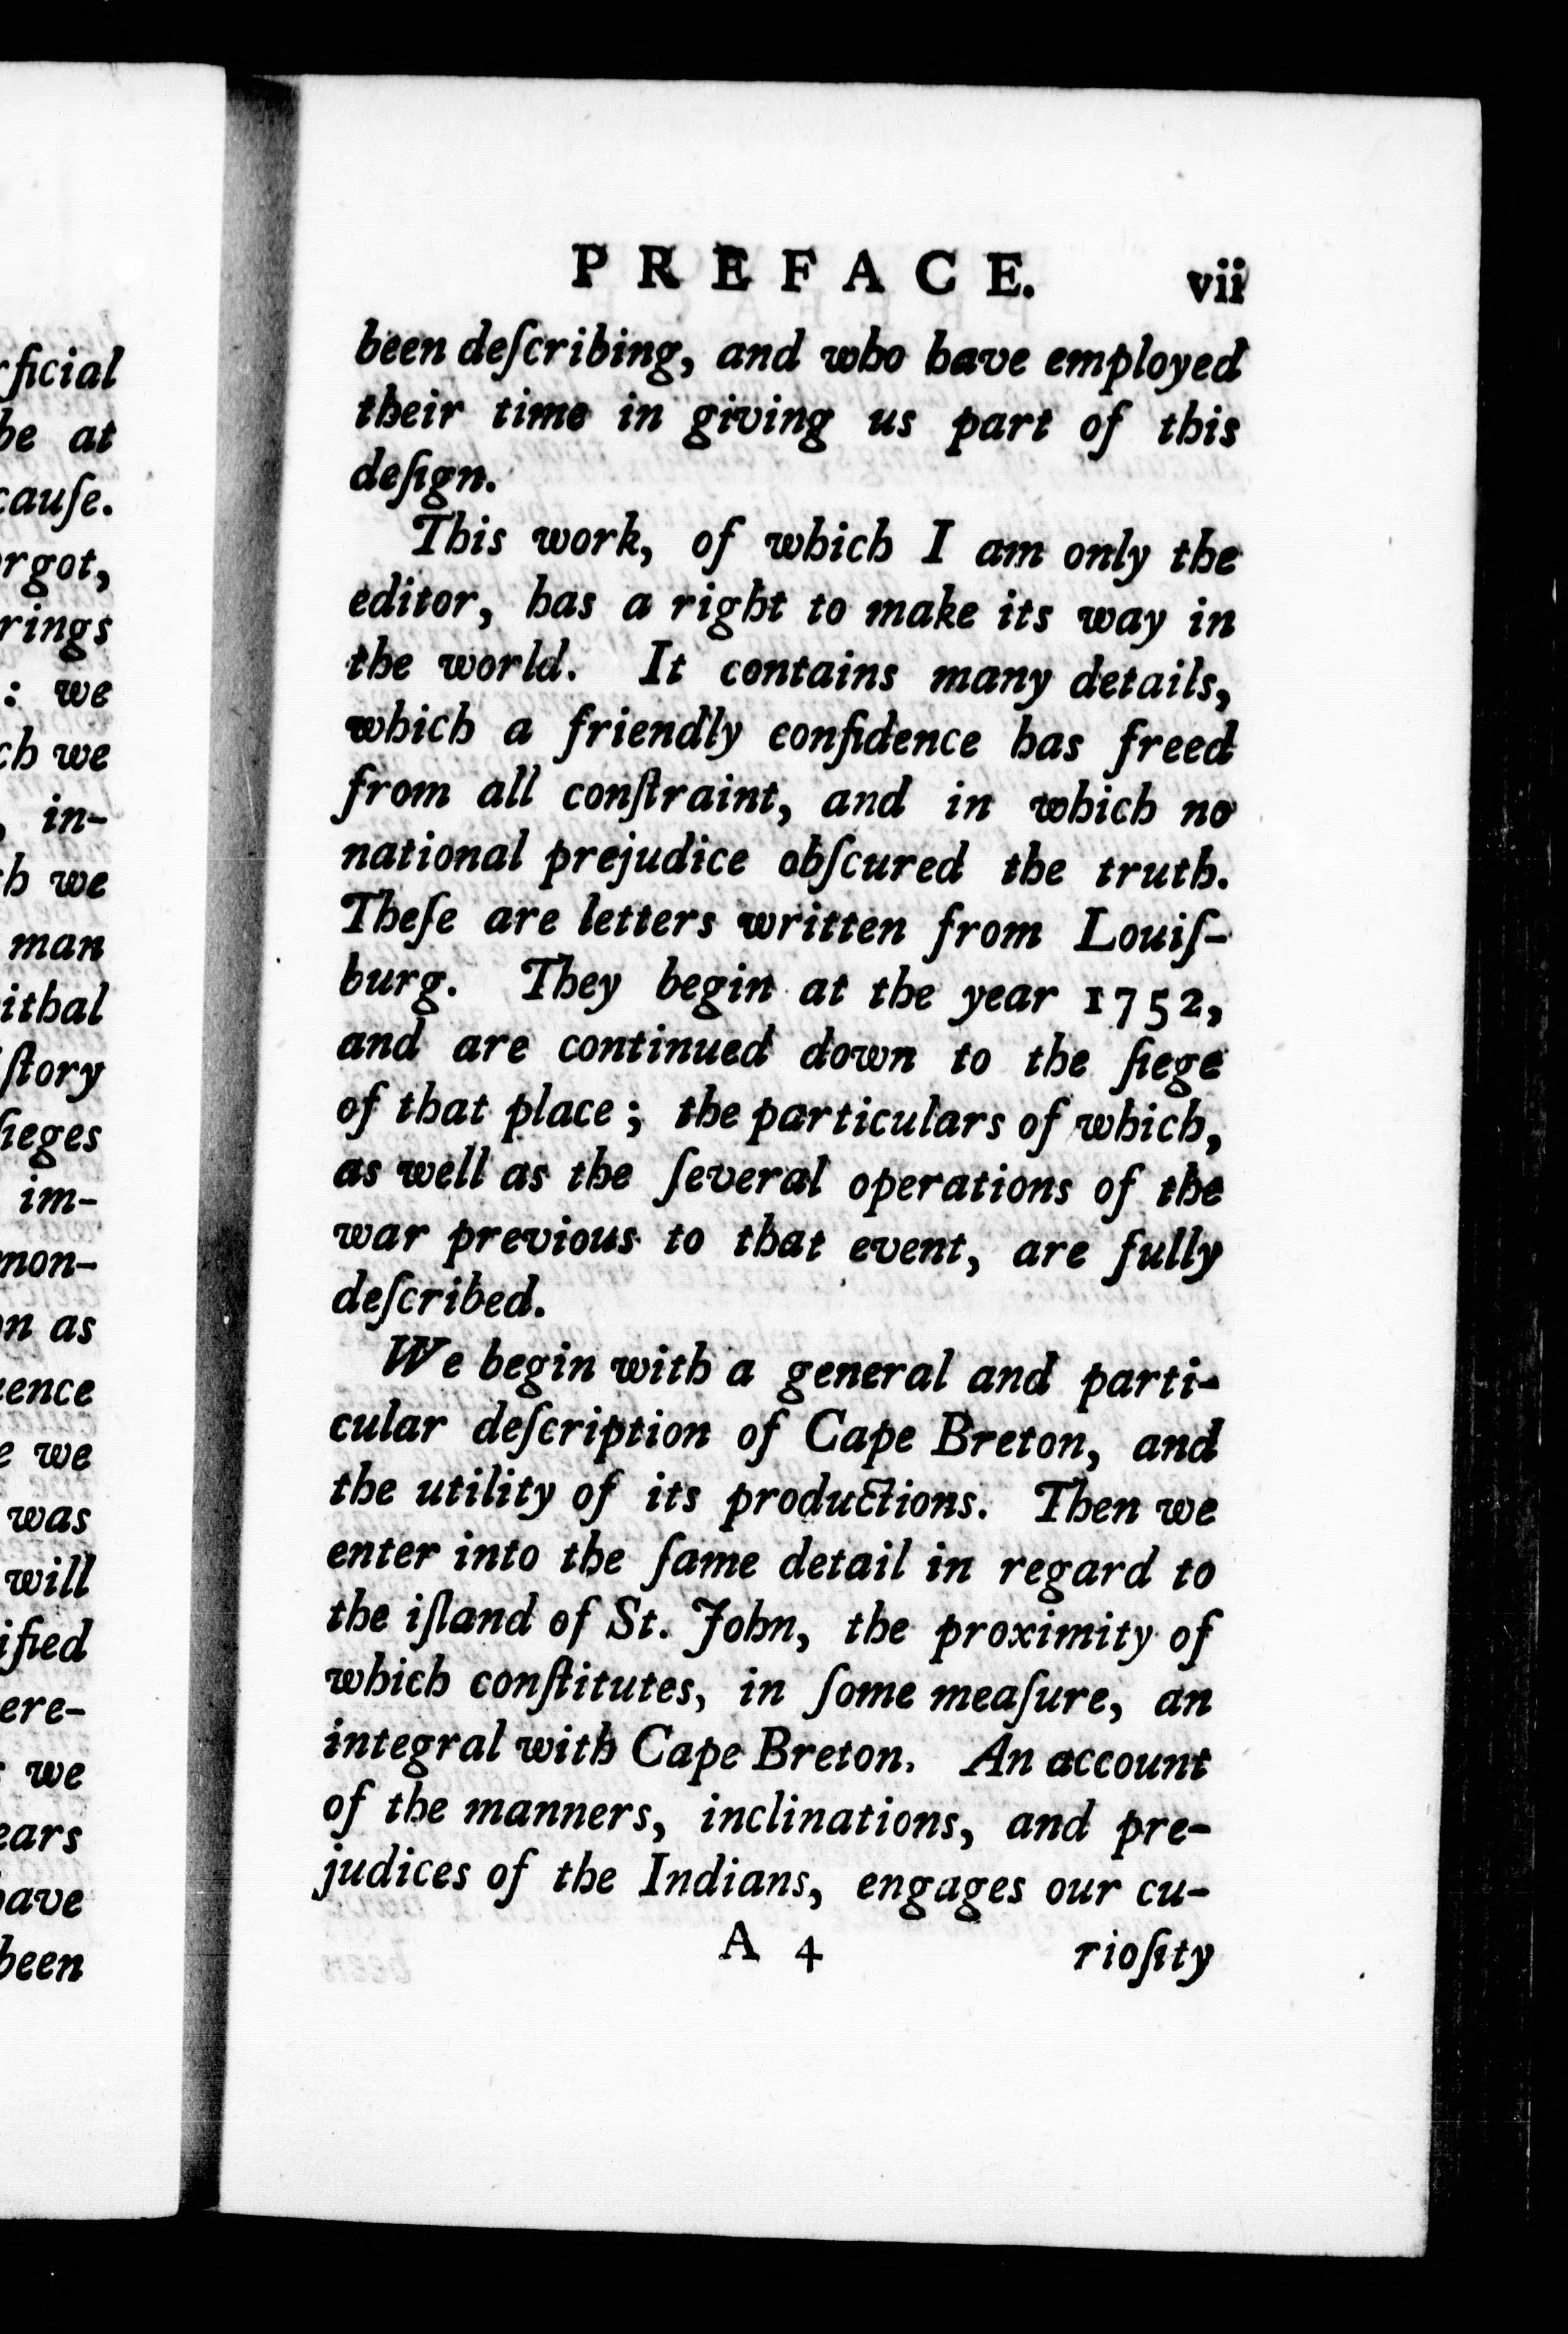 rficial
be at
cauſe.
rgot,
rings
: we
ch we
, in-
h we
man
ithal
ſtory
ſieges
im-
mon-
on as
ence
e we
was
will
ified
ere-
we
ears
have
been
PREFACE. vii
been deſcribing, and who have employed
their time in giving us part of this
deſign.
This work, of which I am only the
editor, has a right to make its way in
the world. It contains many details,
which a friendly confidence has freed
from all conſtraint, and in which no
national prejudice obſcured the truth.
Theſe are letters written from Louiſ-
burg. They begin at the year 1752,
and are continued down to the ſiege
of that place; the particulars of which,
as well as the ſeveral operations of the
war previous to that event, are fully
deſcribed.
We begin with a general and parti-
cular deſcription of Cape Breton, and
the utility of its productions. Then we
enter into the ſame detail in regard to
the iſland of St. John, the proximity of
which conſtitutes, in ſome meaſure, an
integral with Cape Breton. An account
of the manners, inclinations, and pre-
judices of the Indians, engages our cu-
A 4 rioſity